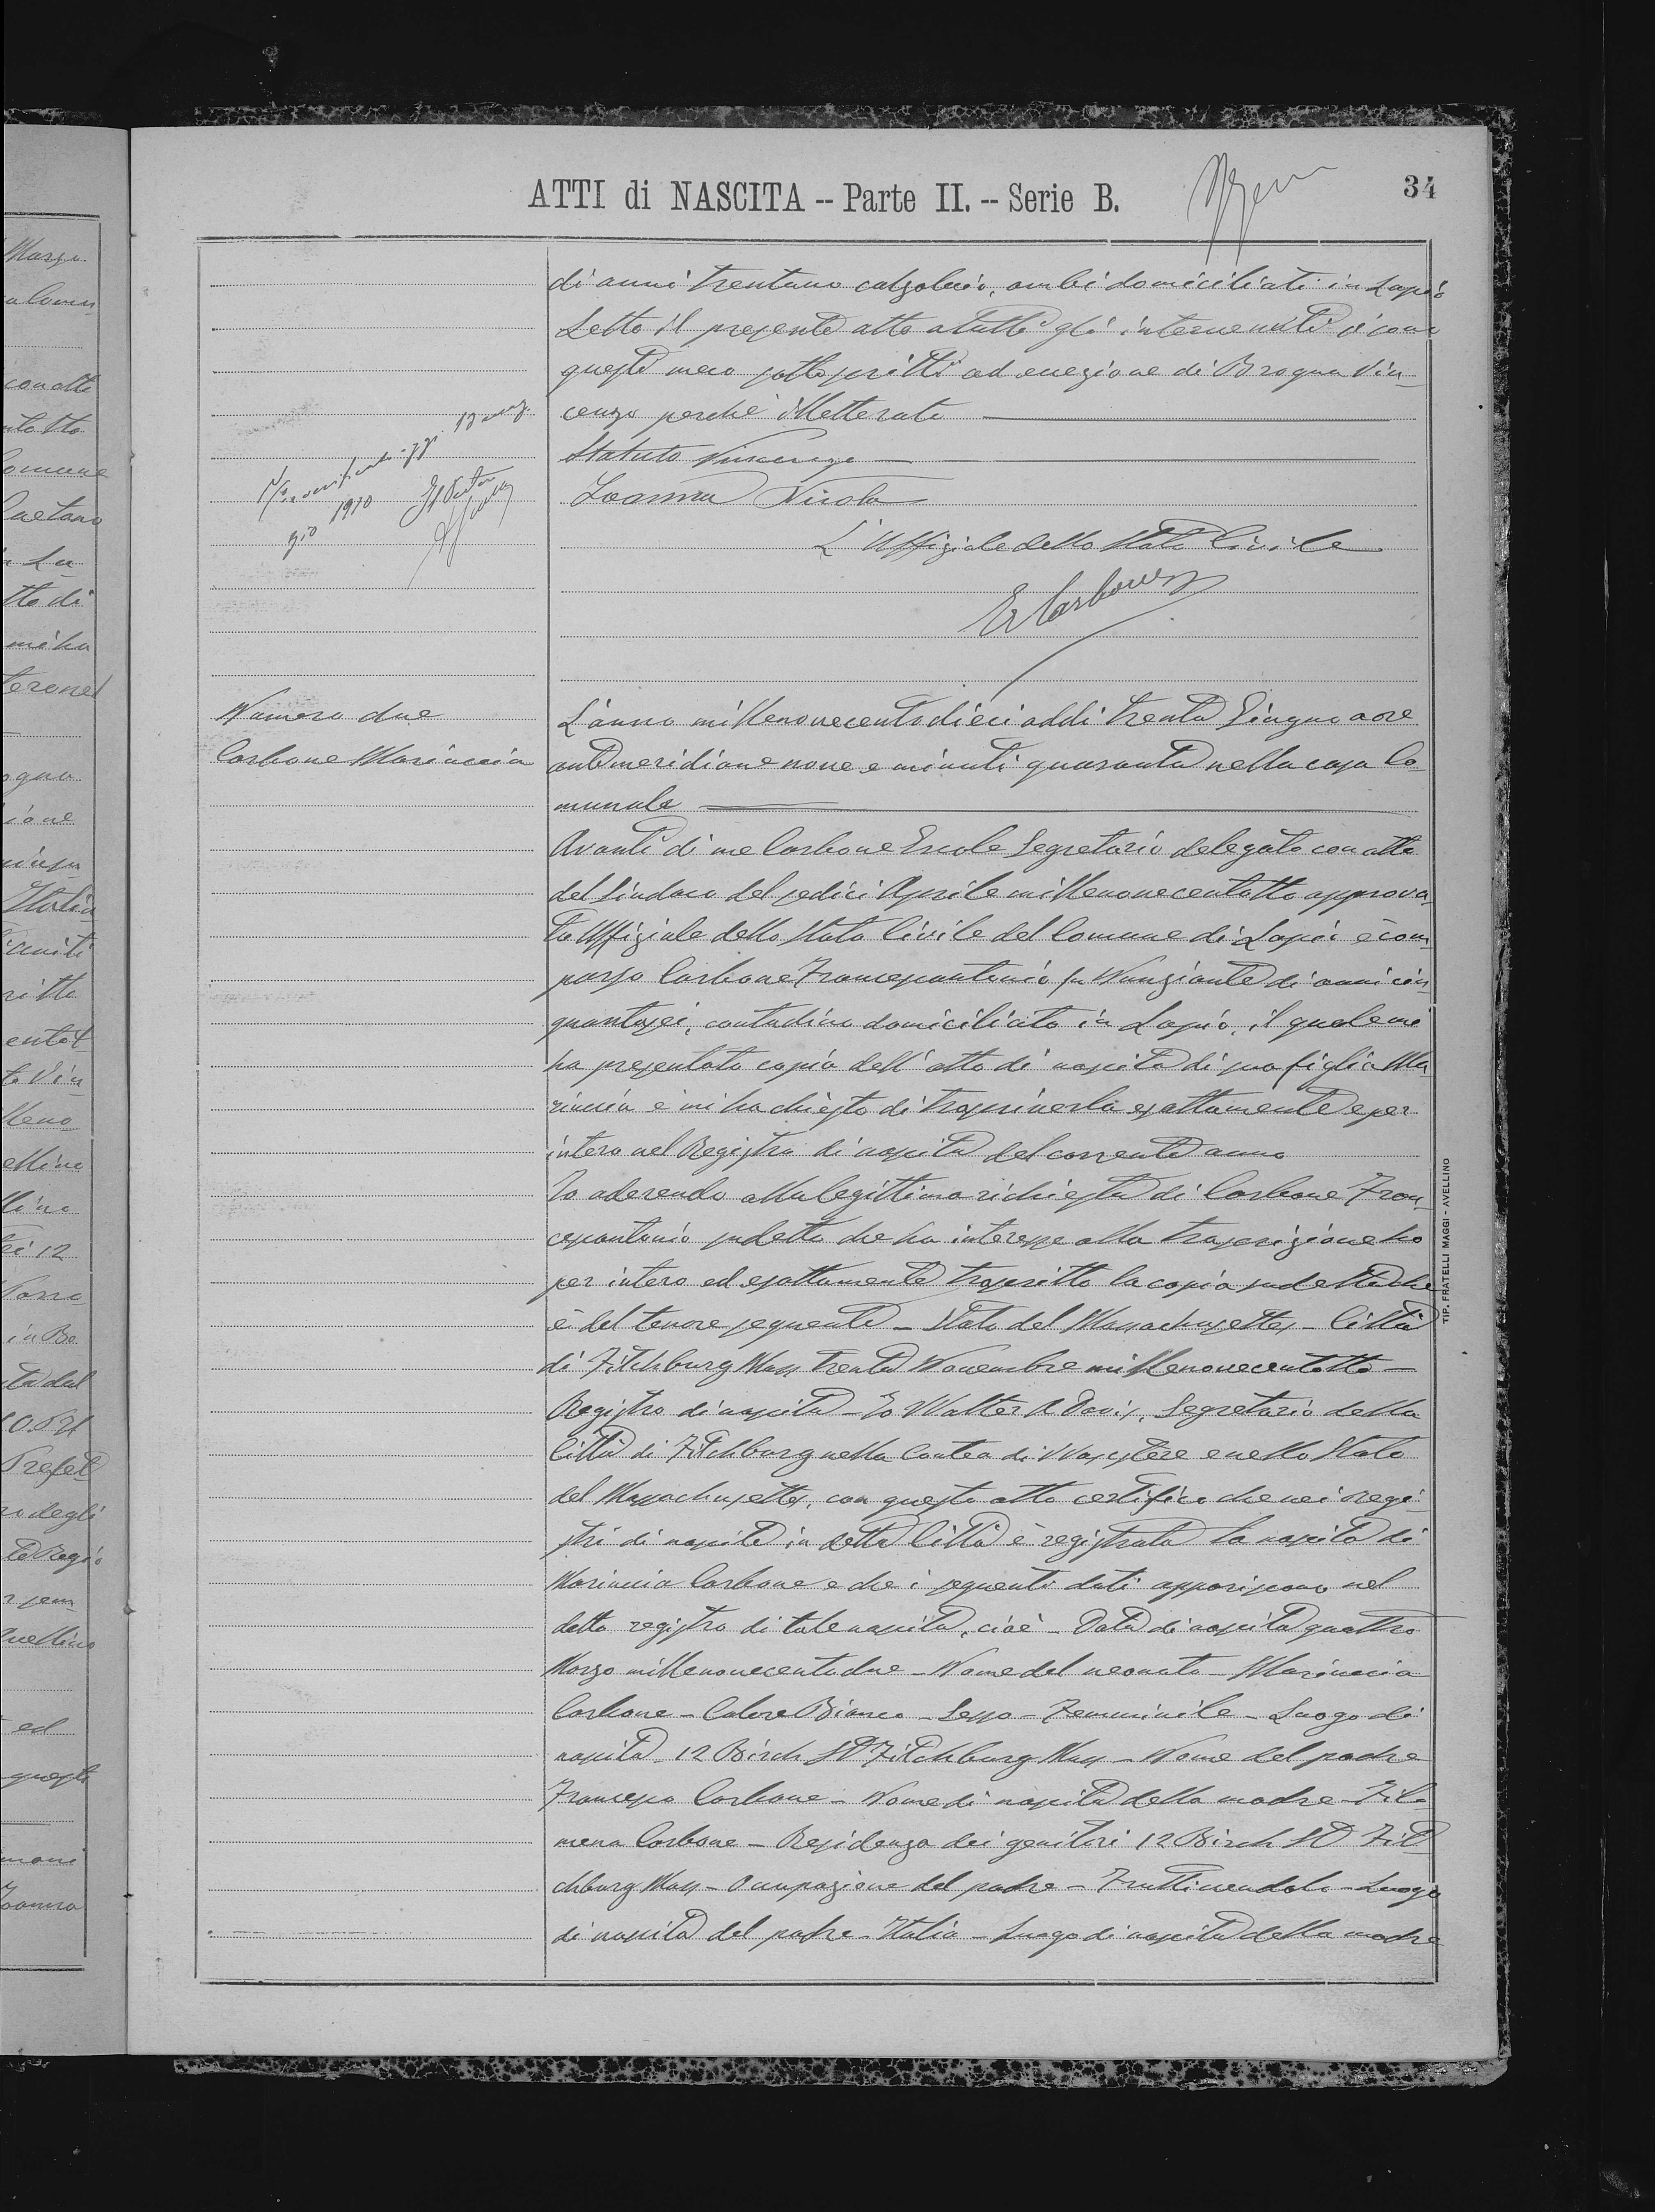 ATTI di NASCITA -- Parte II. -- Serie B.
34
di anni trentuno calzolaio, ambi domiciliati in Lapio
Letto il presente atto a tutti gli intervenuti si sono
questi meco sottoscritti ad eccezione di Brogna Vin-
cenzo perché illetterato
Statuto Vincenzo
Ioanna Nicola
L'Uffiziale dello Stato Civile
E Carbone
verificato oggi 13 mag-
gio 1910 Il Pretore
Numero due
Carbone Mariuccia
L'anno millenovecentodieci addi trenta Giugno a ore
antimeridiane nove e minuti quaranta nella casa Co
munale
Avanti di me Carbone Ercole Segretario delegato con atto
del Sindaco del sedici Aprile millenovecentotto approva
to Uffiziale dello Stato Civile del Comune di Lapio è com
parso Carbone Francescantonio fu Nunziante di anni cin
quantasei, contadino domiciliato in Lapio, il quale mi
ha presentato copia dell'atto di nascita di sua figlia Ma
riuccia e mi ha chiesto di trascriverla esattamente e per
intero nel Registro di nascita del corrente anno
Io aderendo alla legittima richiesta di Carbone Fran
cescantonio sudetto che ha interesse alla trascrizione ho
per intero ed esattamente trascritto la copia sudetta che
è del tenore seguente - Stato del Massachusettes - Città
di Fitchburg Mass trenta Novembre millenovecentotto -
Registro di nascita - Io Walter A Davis, Segretario della
Città di Fitchburg nella Contea di Worcestere e nello Stato
del Massachusettes, con questo atto certifico che nei regi-
stri di nascite in detta Città è registrata la nascita di
Mariuccia Carbone e che i seguenti dati appariscono nel
detto registro di tale nascita, cioè - Data di nascita quattro
Marzo millenovecentodue - Nome del neonato - Mariuccia
Carbone - Colore Bianco - Sesso - Femminile - Luogo di
nascita 12 Birch St Fitchburg Mass - Nome del padre
Francesco Carbone - Nome di nascita della madre - Filo
mena Carbone - Residenza dei genitori 12 Birch St Fit
chburg Mass - Occupazione del padre - Fruttivendolo - Luogo
di nascita del padre - Italia - Luogo di nascita della madre
TIP. FRATELLI MAGGI - AVELLINO